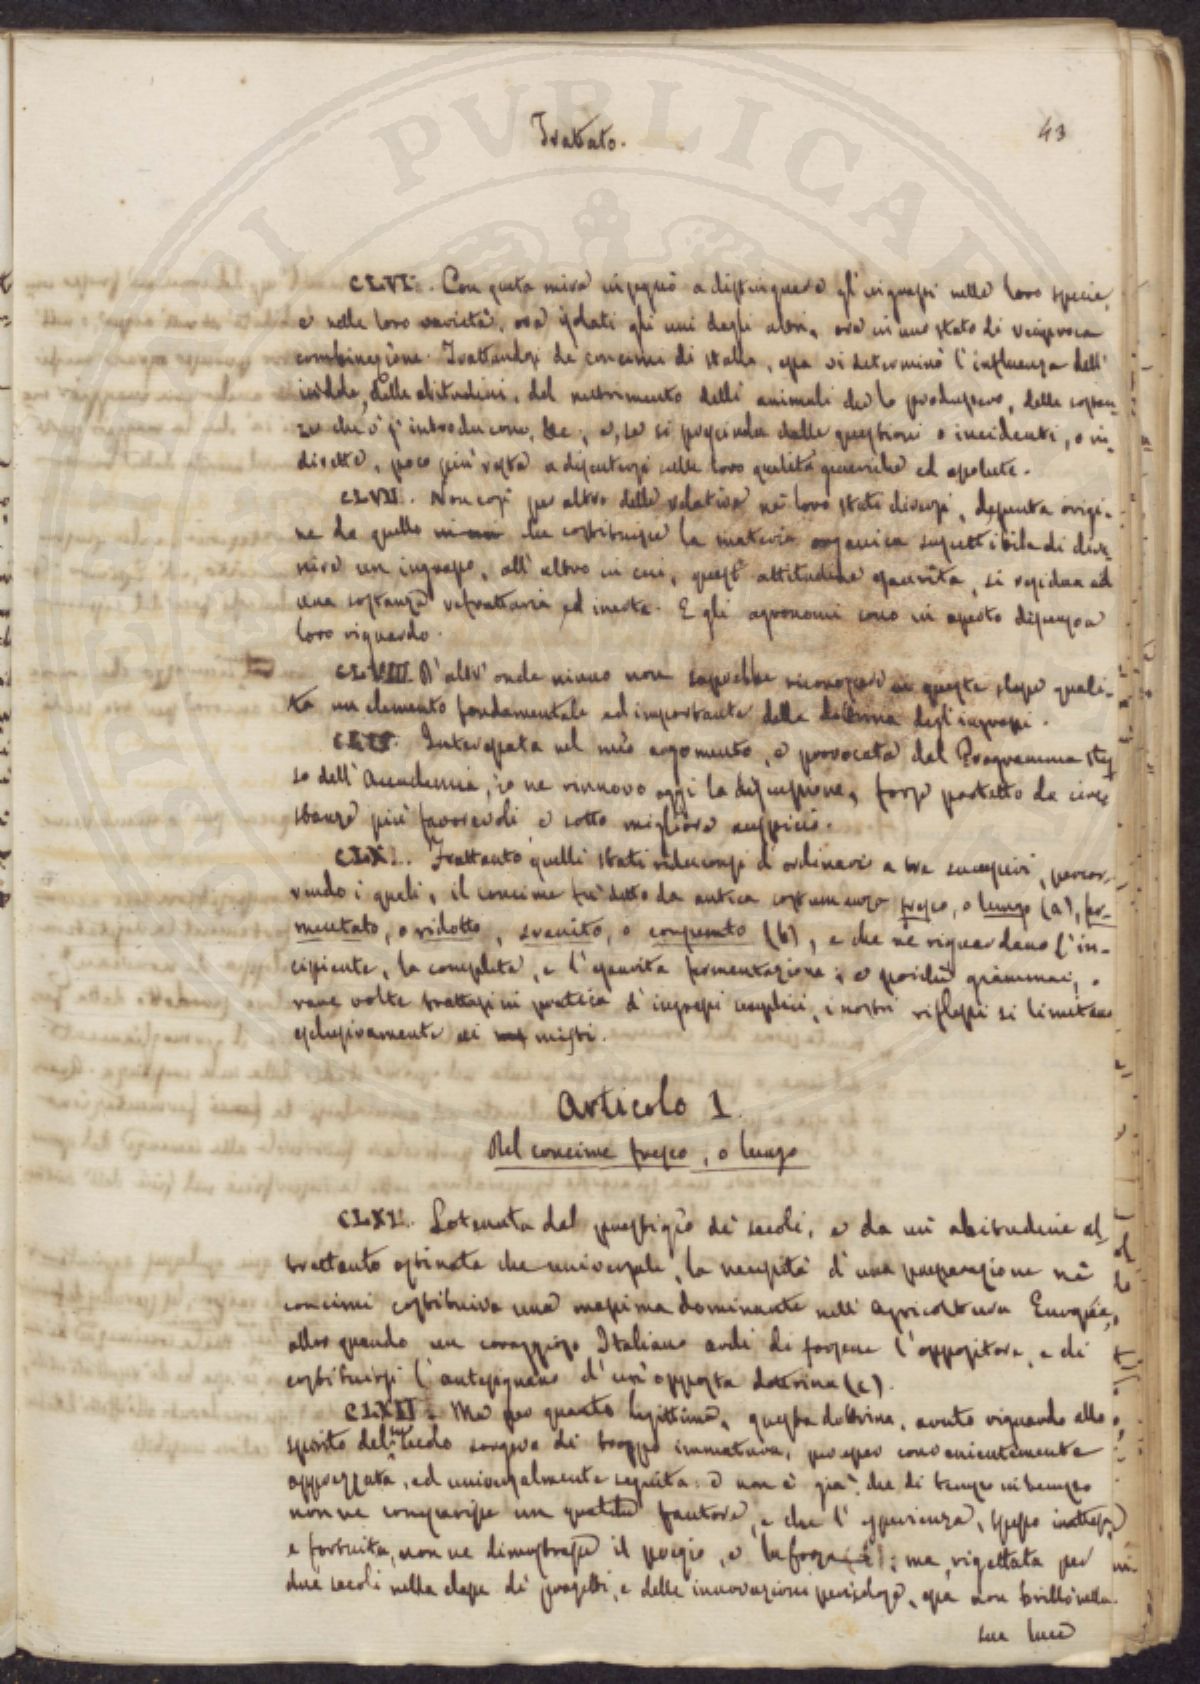 Trattato.
43
CLVI. Con questa mira insegnò a distinguere gl'ingrassi nelle loro specie,
e nelle loro varietà, ora isolati gli uni dagli altri, ora in uno stato di reciproca
combinazione. Trattandosi de' concimi di stalla, essa vi determinò l'influenza dell'
indole, delle abitudini, del nutrimento delli animali che lo producono, delle sostan-
ze che vi s'introducono, &c; e, se si prescinda dalle questioni o incidenti, o in-
dirette, poco più resta a discutersi sulle loro qualità generiche ed assolute.
CLVII. Non così per altro delle relative nei loro stati diversi, desunta origi-
ne da quello in cui costituisce la materia organica suscettibile di dive-
nire un ingrasso, all'altro in cui, quest'attitudine esaurita, si residua ad
una sostanza refrattaria ed inerte. E gli agronomi sono in aperto dissenso a
loro riguardo.
CLVIII. D'altr'onde niuno non saprebbe riconoscere in queste stesse quali-
tà un elemento fondamentale ed importante della dottrina degl'ingrassi.
CLIX. Interessata nel mio argomento, e provocata dal Programma stes
so dell'Accademia, io ne rinnovo oggi la discussione, forse protetto da circo
stanze più favorevoli e sotto migliore auspicio.
CLX. Frattanto quelli stati riduconsi d'ordinario a tre successivi, percor-
rendo i quali, il concime fu detto da antica costumanza fresco, o lungo (a), fer-
mentato, o ridotto, svanito, o consunto (b), e che ne riguardano l'in-
cipiente, la completa, e l'esaurita fermentazione; e poichè giammai, o
rare volte trattasi in pratica d'ingrassi semplici, i nostri riflessi si limitano
esclusivamente ai misti.
Articolo 1.
Del concime fresco, o lungo
CLXI. Sostenuta dal prestigio dei secoli, e da un'abitudine al-
trettanto ostinata che universale, la necessità d'una preparazione nei
concimi costituiva una massima dominante nell'Agricoltura Europea,
allor quando un coraggioso Italiano ardì di farsene l'oppositore, e di
costituirsi l'antesignano d'un'opposta dottrina (c).
CLXII. Ma per quanto legittima, questa dottrina, avuto riguardo allo
spirito del suo secolo sorgeva di troppo immatura, per esser convenientemente
apprezzata, ed universalmente seguita: e non è già che di tempo in tempo
non ne comparisse un qualche fautore, e che l'esperienza, spesso inattesa
e fortuita, non ne dimostrasse il pregio, e la forza; ma, rigettata per
due secoli nella classe dei progetti, e delle innovazioni, essa non brillò nella
sua luce